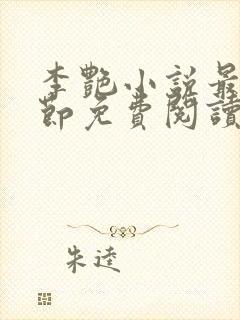 李艷小說最
節免費閱讀
朱逵